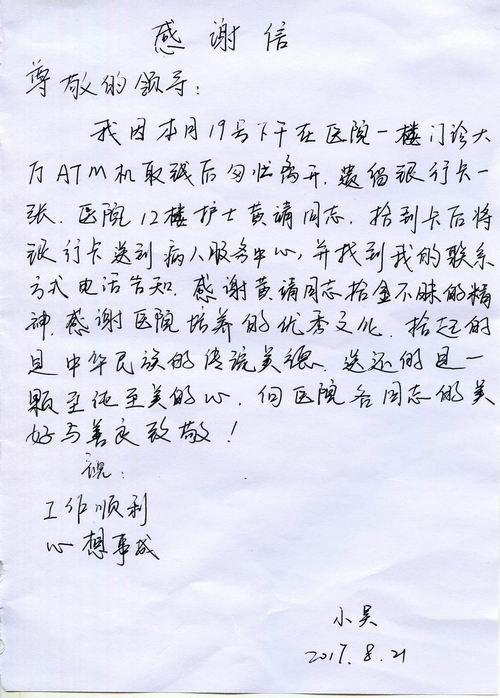 感谢信
尊敬的领导：
我因本月19号下午在医院一楼门诊大
厅ATM机取钱后匆忙离开，遗留银行卡一
张．医院12楼护士黄靖同志．拾到卡后将
银行卡送到病人服务中心，并找到我的联系
方式电话告知．感谢黄靖同志拾金不昧的精
神．感谢医院培养的优秀文化．拾起的
是中华民族的传统美德．送还的是一
颗至纯至美的心．向医院各同志的美
好与善良致敬！
祝：
工作顺利
心想事成
小吴
2017.8.21